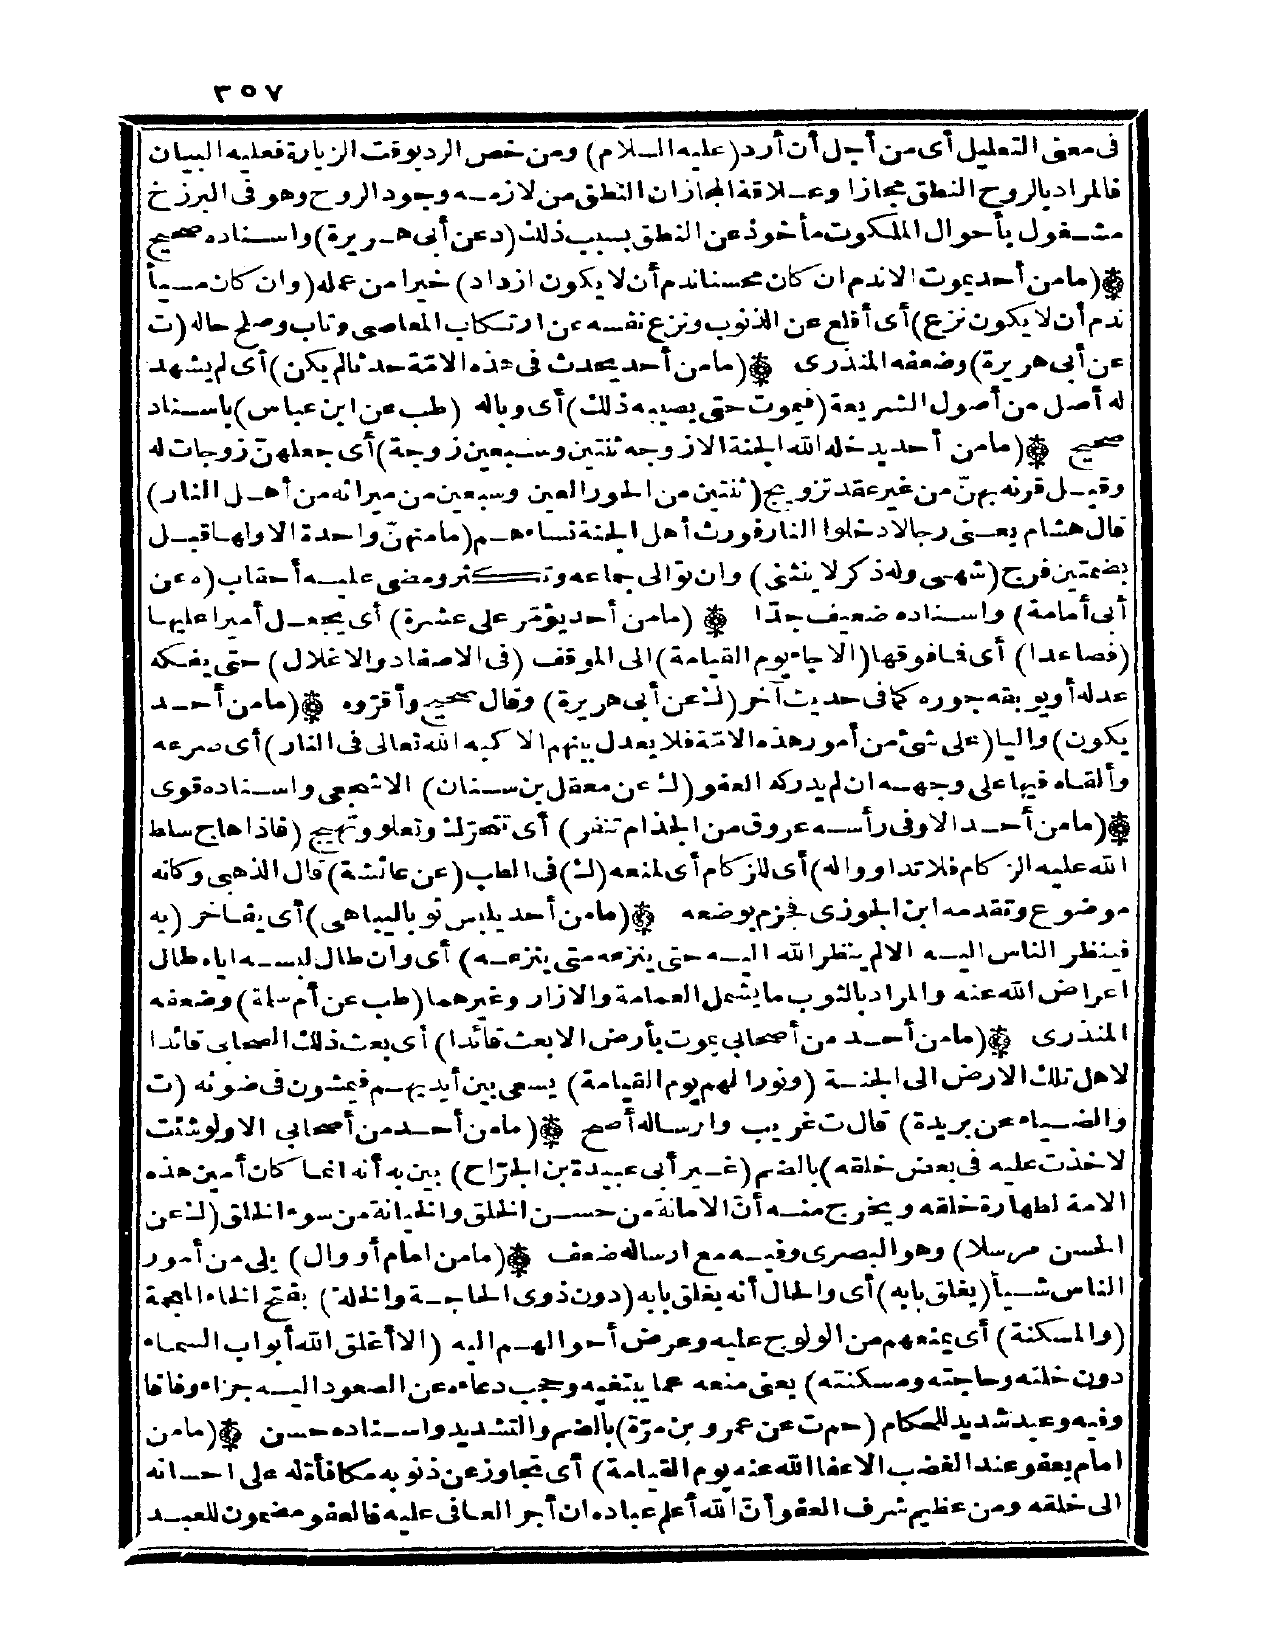 ٣٥٧
فى معنى التعليل أى من أجل أن أرد (عليه السلام) ومن خص الرد بوقت الزيارة فعليه البيان
فالمراد بالروح النطق مجازا وعلاقة المجاز ان النطق من لازمه وجود الروح وهو فى البرزخ
مشغول بأحوال الملكوت مأخوذ عن النطق بسبب ذلك (د عن أبى هريرة) واسناده صحيح
(ما من أحد يموت الا ندم ان كان محسنا ندم أن لا يكون ازداد) خيرا من عمله (وان كان مسيأ
ندم أن لا يكون نزع) أى أقلع عن الذنوب ونزع نفسه عن ارتكاب المعاصى وتاب وصلح حاله (ت
عن أبى هريرة) وضعفه المنذرى (ما من أحد يحدث فى هذه الامة حدثا لم يكن) أى لم يشهد
له أصل من أصول الشريعة (فيموت حتى يصيبه ذلك) أى وباله (طب عن ابن عباس) باسناد
صحيح (ما من أحد يدخله الله الجنة الا زوجه ثنتين وسبعين زوجة) أى جعلهنّ زوجات له
وقيل قرنه بهنّ من غير عقد تزويج (ثنتين من الحور العين وسبعين من ميراثه من أهل النار)
قال هشام يعنى رجالا دخلوا النار فورث أهل الجنة نساءهم (ما منهنّ واحدة الا ولها قبل
بضمتين فرج (شهى وله ذكر لا ينثنى) وان توالى جماعه وتكثر ومضى عليه أحقاب (ه عن
أبى أمامة) واسناده ضعيف جدّا (ما من أحد يؤمّر على عشرة) أى يجعل أميرا عليها
(فصاعدا) أى فما فوقها (الا جاء يوم القيامة) الى الموقف (فى الاصفاد والاغلال) حتى يفكه
عدله أو يوبقه جوره كما فى حديث آخر (ك عن أبى هريرة) وقال صحيح وأقرّوه (ما من أحد
يكون) واليا (على شئ من أمور هذه الامّة فلا يعدل بينهم الا كبه الله تعالى فى النار) أى صرعه
وألقاه فيها على وجهه ان لم يدركه العفو (ك عن معقل بن سنان) الاشجعى واسناده قوى
(ما من أحد الا وفى رأسه عروق من الجذام تنفر) أى تتحرّك وتعلو وتهيج (فاذا هاج سلط
الله عليه الزكام فلا تداووا له) أى للزكام أى لمنعه (ك) فى الطب (عن عائشة) قال الذهبى وكأنه
موضوع وتقدمه ابن الجوزى فجزم بوضعه (ما من أحد يلبس ثوبا ليباهى) أى يفاخر (به
فينظر الناس اليه الا لم ينظر الله اليه حتى ينزعه متى ينزعه) أى وان طال لبسه اياه طال
اعراض الله عنه والمراد بالثوب ما يشمل العمامة والازار وغيرهما (طب عن أم سلمة) وضعفه
المنذرى (ما من أحد من أصحابى يموت بأرض الا بعث قائدا) أى بعث ذلك الصحابى قائدا
لاهل تلك الارض الى الجنة (ونورا لهم يوم القيامة) يسعى بين أيديهم فيمشون فى ضوئه (ت
والضياء عن بريدة) قال ت غريب وارساله أصح (ما من أحد من أصحابى الا ولو شئت
لاخذت عليه فى بعض خلقه) بالضم (غير أبى عبيدة بن الجرّاح) بين به أنه انما كان أمين هذه
الامة لطهارة خلقه ويخرج منه أنّ الامانة من حسن الخلق والخيانة من سوء الخلق (ك عن
الحسن مرسلا) وهو البصرى وفيه مع ارساله ضعف (ما من امام أو وال) يلى من أمور
الناس شيأ (يغلق بابه) أى والحال أنه يغلق بابه (دون ذوى الحاجة والخلة) بفتح الخاء المعجمة
(والمسكنة) أى يمنعهم من الولوج عليه وعرض أحوالهم اليه (الا أغلق الله أبواب السماء
دون خلته وحاجته ومسكنته) يعنى منعه عما يبتغيه وحجب دعاءه عن الصعود اليه جزاء وفاقا
وفيه وعيد شديد للحكام (حم ت عن عمرو بن مرّة) بالضم والتشديد واسناده حسن (ما من
امام يعفو عند الغضب الا عفا الله عنه يوم القيامة) أى تجاوز عن ذنوبه مكافأة له على احسانه
الى خلقه ومن عظيم شرف العفو أنّ الله أعلم عباده ان أجر العافى عليه فالعفو مضمون للعبد